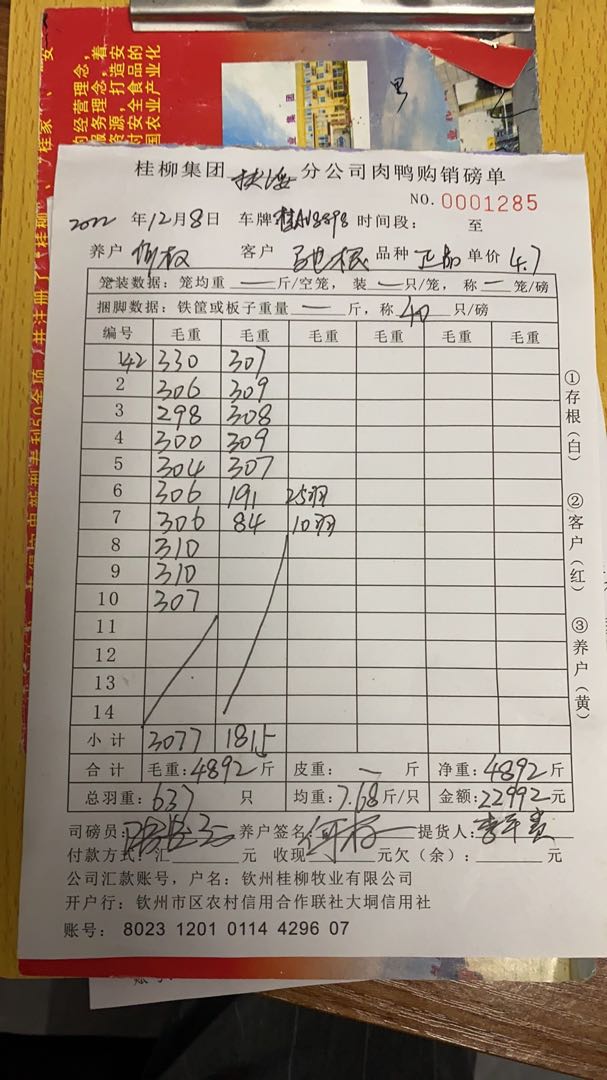 的经营理念,
服务理念,着
资源,打造安
付安全食品的
国农业产业化
桂柳集团 扶绥 分公司肉鸭购销磅单
NO. 0001285
2022 年12月8日 车牌 时间段: 至
养户 何权 客户 品种 单价 4.7
笼装数据:笼均重 — 斤/空笼,装 — 只/笼,称 — 笼/磅
捆脚数据:铁筐或板子重量 — 斤,称 40 只/磅
编号 毛重 毛重 毛重 毛重 毛重 毛重
1 42 330 307
2 306 309
3 298 308
4 300 309
5 304 307
6 306 191 25羽
7 306 84 10羽
8 310
9 310
10 307
11
12
13
14
小计 3077 1815
合计 毛重:4892斤 皮重: — 斤 净重:4892斤
总羽重:637 只 均重:7.68斤/只 金额:22992元
司磅员: 养户签名:何权 提货人:
付款方式:汇 元 收现 元欠(余): 元
公司汇款账号,户名:钦州桂柳牧业有限公司
开户行:钦州市区农村信用合作联社大垌信用社
账号: 8023 1201 0114 4296 07
①存根(白)
②客户(红)
③养户(黄)